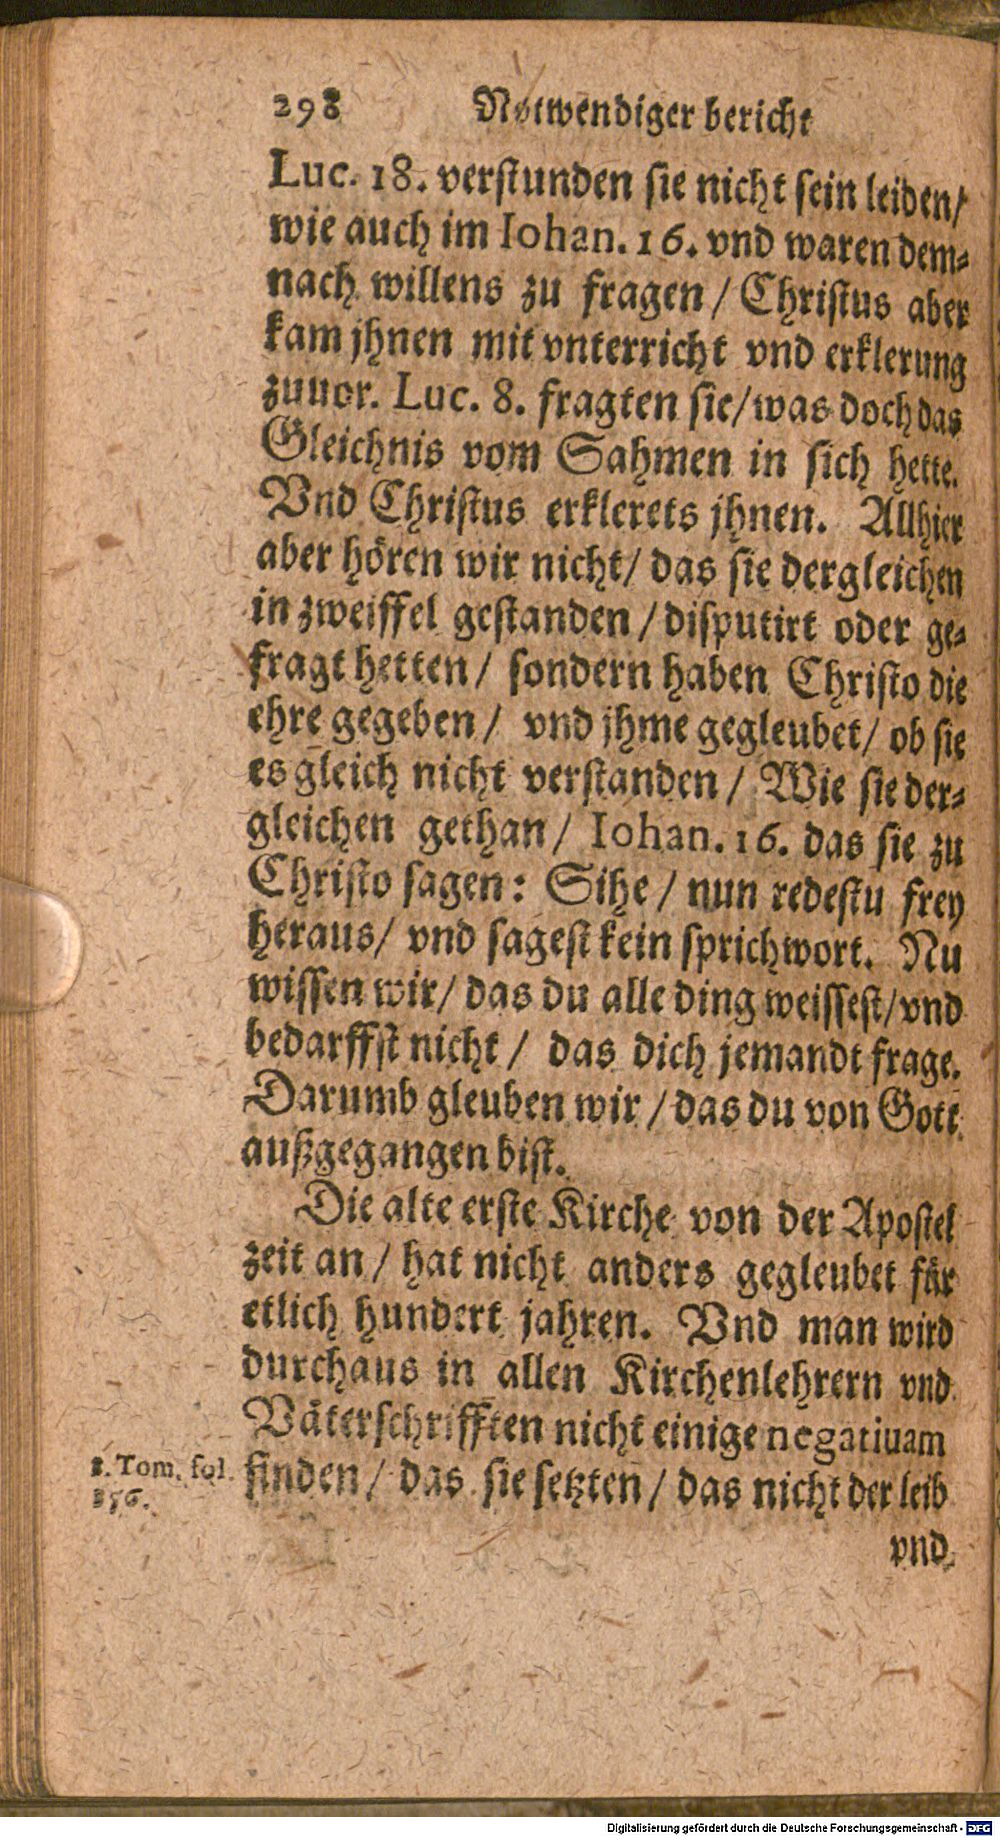 298 Notwendiger bericht
Luc. 18. verstunden sie nicht sein leiden/
wie auch im Iohan. 16. vnd waren dem⸗
nach willens zu fragen / Christus aber
kam jhnen mit vnterricht vnd erklerung
zuuor. Luc. 8. fragten sie/was doch das
Gleichnis vom Sahmen in sich hette.
Vnd Christus erklerets jhnen. Allhier
aber hören wir nicht/ das sie dergleichen
in zweiffel gestanden / disputirt oder ge⸗
fragt hetten / sondern haben Christo die
ehre gegeben / vnd jhme gegleubet/ ob sie
es gleich nicht verstanden / Wie sie der⸗
gleichen gethan / Iohan. 16. das sie zu
Christo sagen: Sihe / nun redestu frey
heraus/ vnd sagest kein sprichwort. Nu
wissen wir/ das du alle ding weissest/vnd
bedarffst nicht / das dich jemandt frage.
Darumb gleuben wir / das du von Gott
außgegangen bist.
Die alte erste Kirche von der Apostel
zeit an / hat nicht anders gegleubet für
etlich hundert jahren. Vnd man wird
durchaus in allen Kirchenlehrern vnd
Väterschrifften nicht einige negatiuam
finden / das sie setzten / das nicht der leib
8. Tom. fol.
356.
vnd
Digitalisierung gefördert durch die Deutsche Forschungsgemeinschaft - DFG